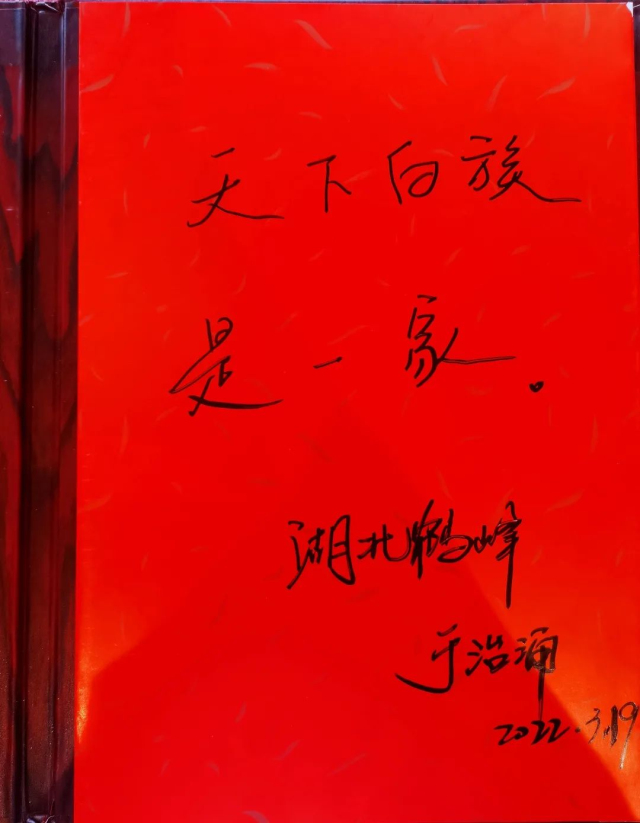 天下白族
是一家。
湖北鹤峰
于治涌
2022.3.19